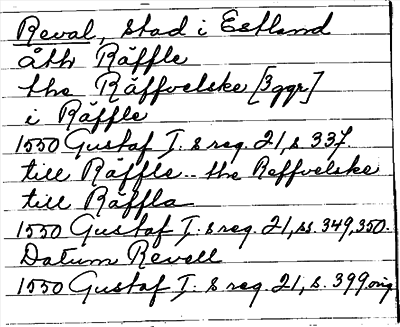 Reval, stad i Estland
åth Räffle
the Räffvelske [3 ggr]
i Räffle
1550 Gustaf I. s reg. 21, s 337.
till Räffle.. the Reffvelske
till Räffla
1550 Gustaf I. s reg. 21, ss. 349, 350.
Datum Revell
1550 Gustaf I. s reg. 21, s. 399 orig